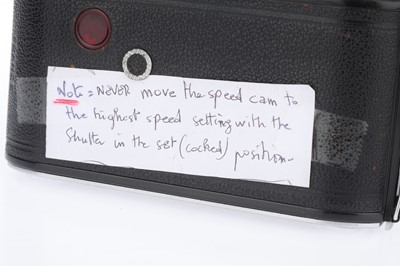 Note = NEVER move the speed cam to
the highest speed setting with the
Shutter in the set (cocked) position-